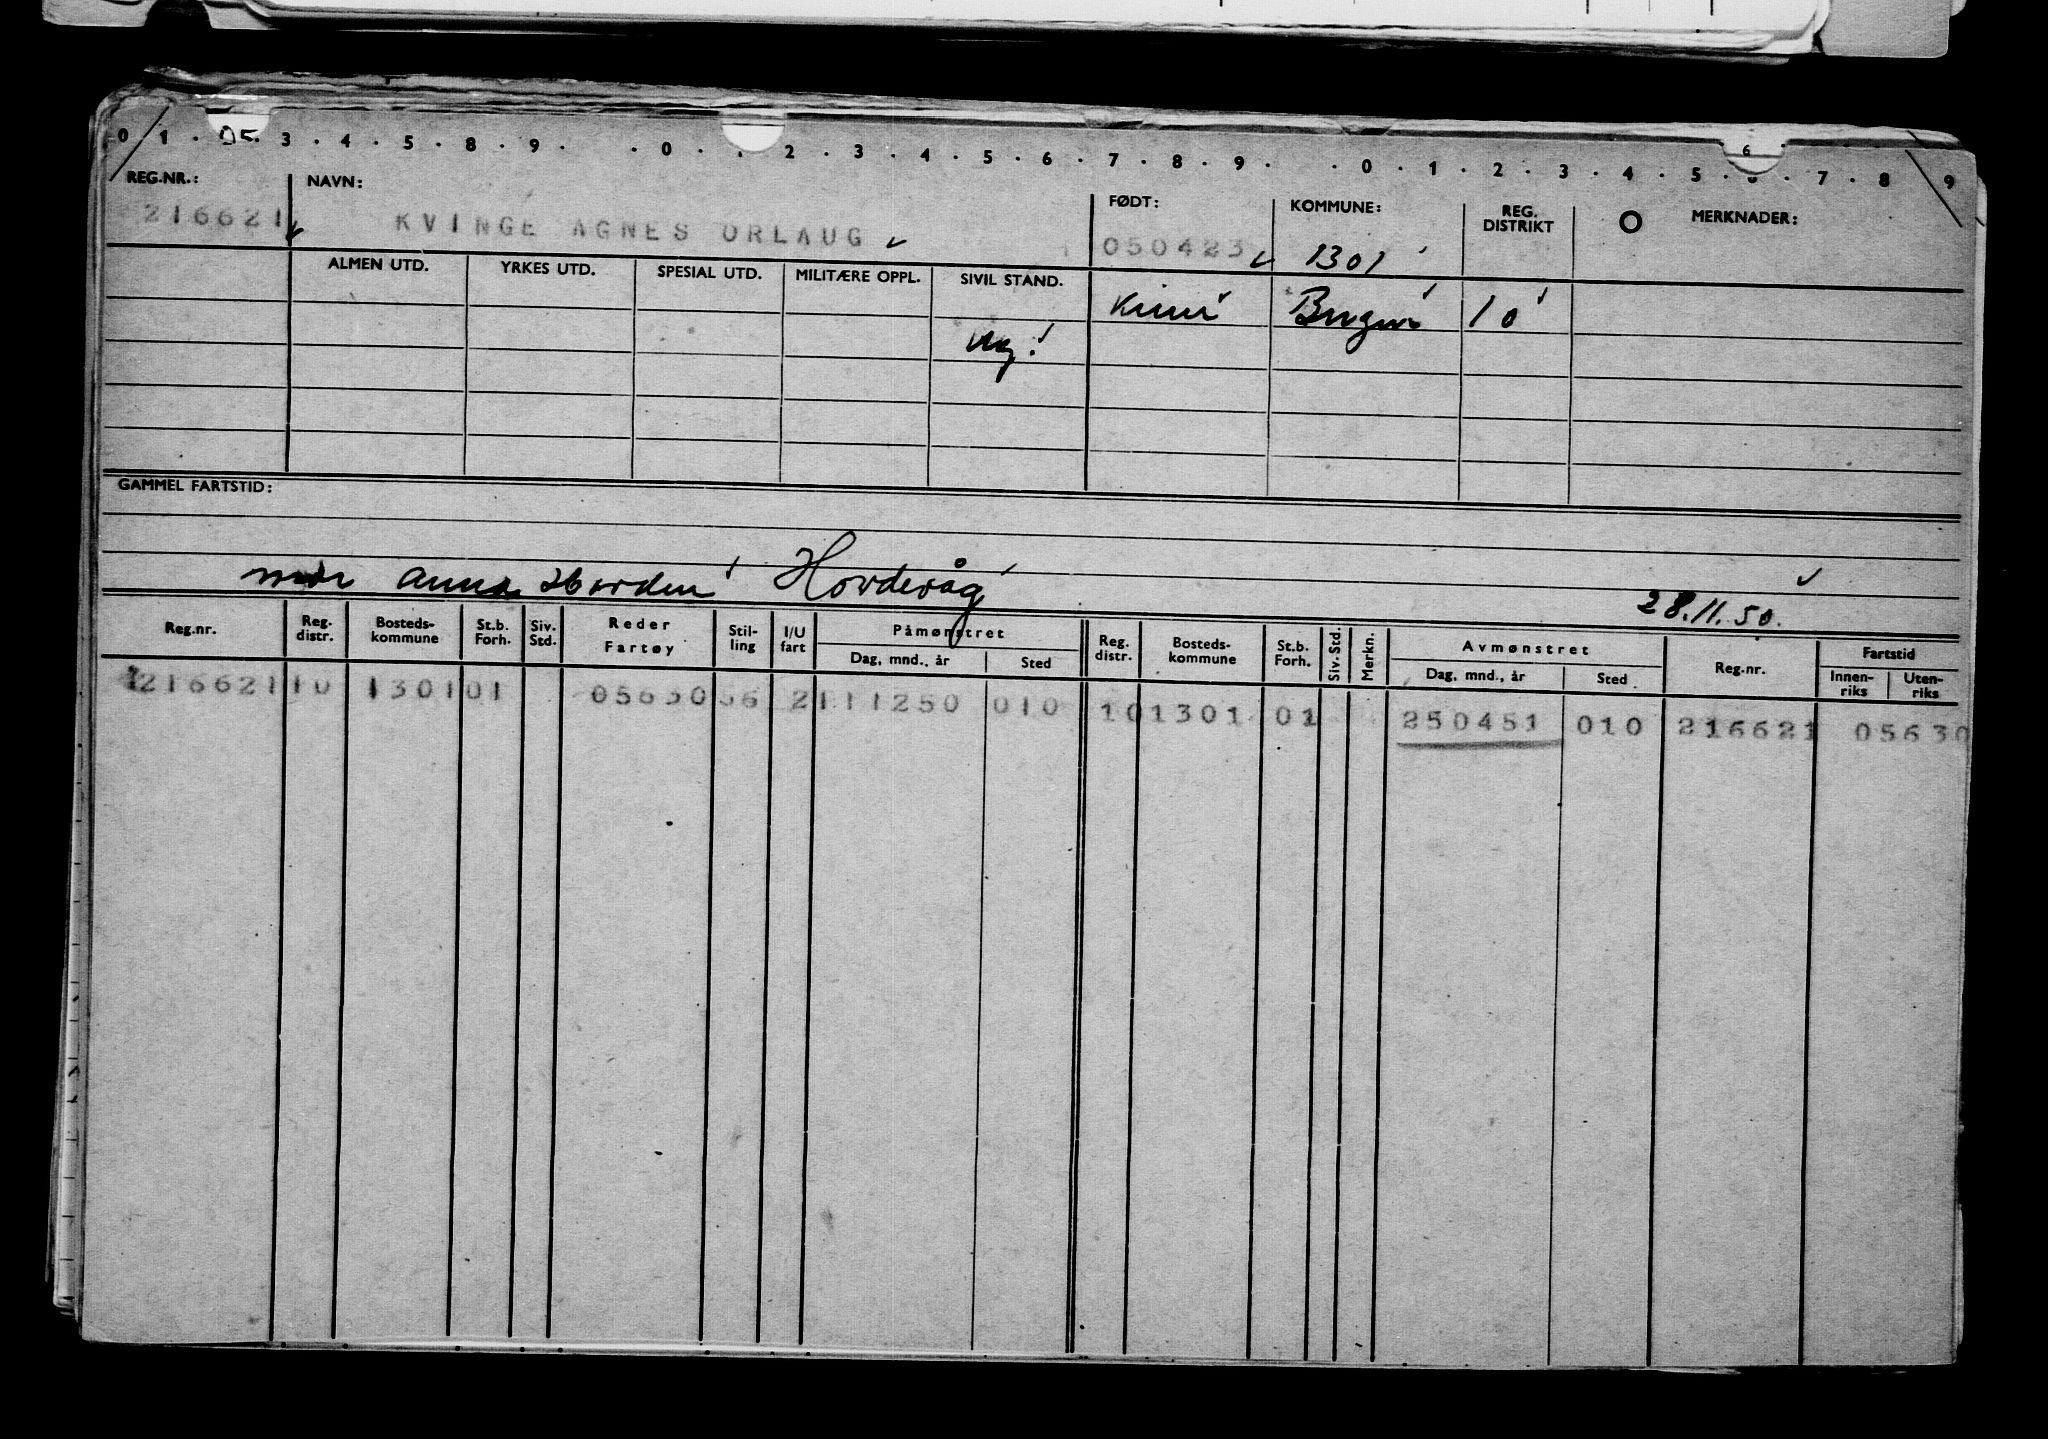 0 1 . 05 . 3 . 4 . 5 . 8 . 9 . . 0 . . 2 . 3 . 4 . 5 . 6 . 7 . 8 . 9 . . 0 . 1 . 2 . 3 . 4 . 5 . 6 . 7 . 8 9
REG.NR.: NAVN: FØDT: KOMMUNE: REG. DISTRIKT O MERKNADER:
216621 KVINGE AGNES ORLAUG 050423 1301
ALMEN UTD. YRKES UTD. SPESIAL UTD. MILITÆRE OPPL. SIVIL STAND.
Kinn Bergen 10
ug.
GAMMEL FARTSTID:
mor Anna Horden Hordevåg 28.11.50.
Reg.nr. Reg. distr. Bosteds-kommune St.b. Forh. Siv. Std. Reder Fartøy Stil-ling I/U fart Påmønstret Reg. distr. Bosteds-kommune St.b. Forh. Siv. Std. Merkn. Avmønstret Reg.nr. Fartstid
Dag, mnd., år Sted Dag, mnd., år Sted Innen-riks Uten-riks
216621 10 1301 01 05630 56 2 111250 010 10 1301 01 250451 010 216621 05630